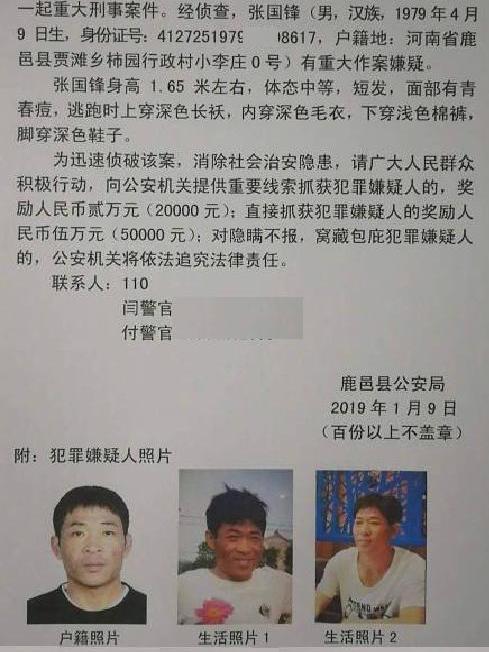 一起重大刑事案件。经侦查，张国锋（男，汉族，1979年4月
9日生，身份证号：4127251979 08617，户籍地：河南省鹿
邑县贾滩乡柿园行政村小李庄0号）有重大作案嫌疑。
张国锋身高 1.65 米左右，体态中等，短发，面部有青
春痘，逃跑时上穿深色长袄，内穿深色毛衣，下穿浅色棉裤，
脚穿深色鞋子。
为迅速侦破该案，消除社会治安隐患，请广大人民群众
积极行动，向公安机关提供重要线索抓获犯罪嫌疑人的，奖
励人民币贰万元（20000 元）；直接抓获犯罪嫌疑人的奖励人
民币伍万元（50000 元）；对隐瞒不报，窝藏包庇犯罪嫌疑人
的，公安机关将依法追究法律责任。
联系人：110
闫警官
付警官
鹿邑县公安局
2019 年 1 月 9 日
（百份以上不盖章）
附：犯罪嫌疑人照片
户籍照片
生活照片 1
生活照片 2